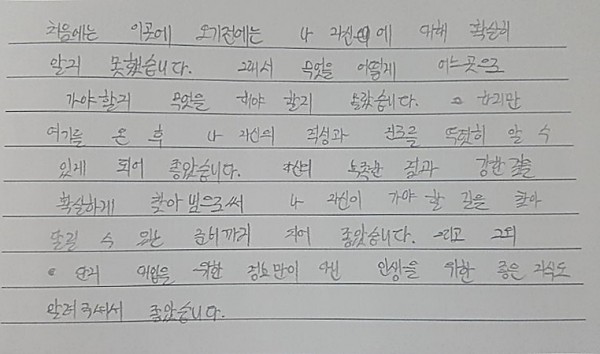 처음에는 이곳에 오기전에는 나 자신에 대해 확실히
알지 못했습니다. 그래서 무엇을 어떻게 어느곳으로
가야할지 무엇을 해야 할지 몰랐습니다. 하지만
여기를 온 후 나 자신의 적성과 진로를 뚜렷히 알 수
있게 되어 좋았습니다. 자신의 부족한 점과 강한 점을
확실하게 찾아 봄으로써 나 자신이 가야 할 길을 찾아
달릴 수 있는 준비까지 되어 좋았습니다. 그리고
단지 취업을 위한 정보만이 아닌 인생을 위한 좋은 지식도
알려주셔서 좋았습니다.